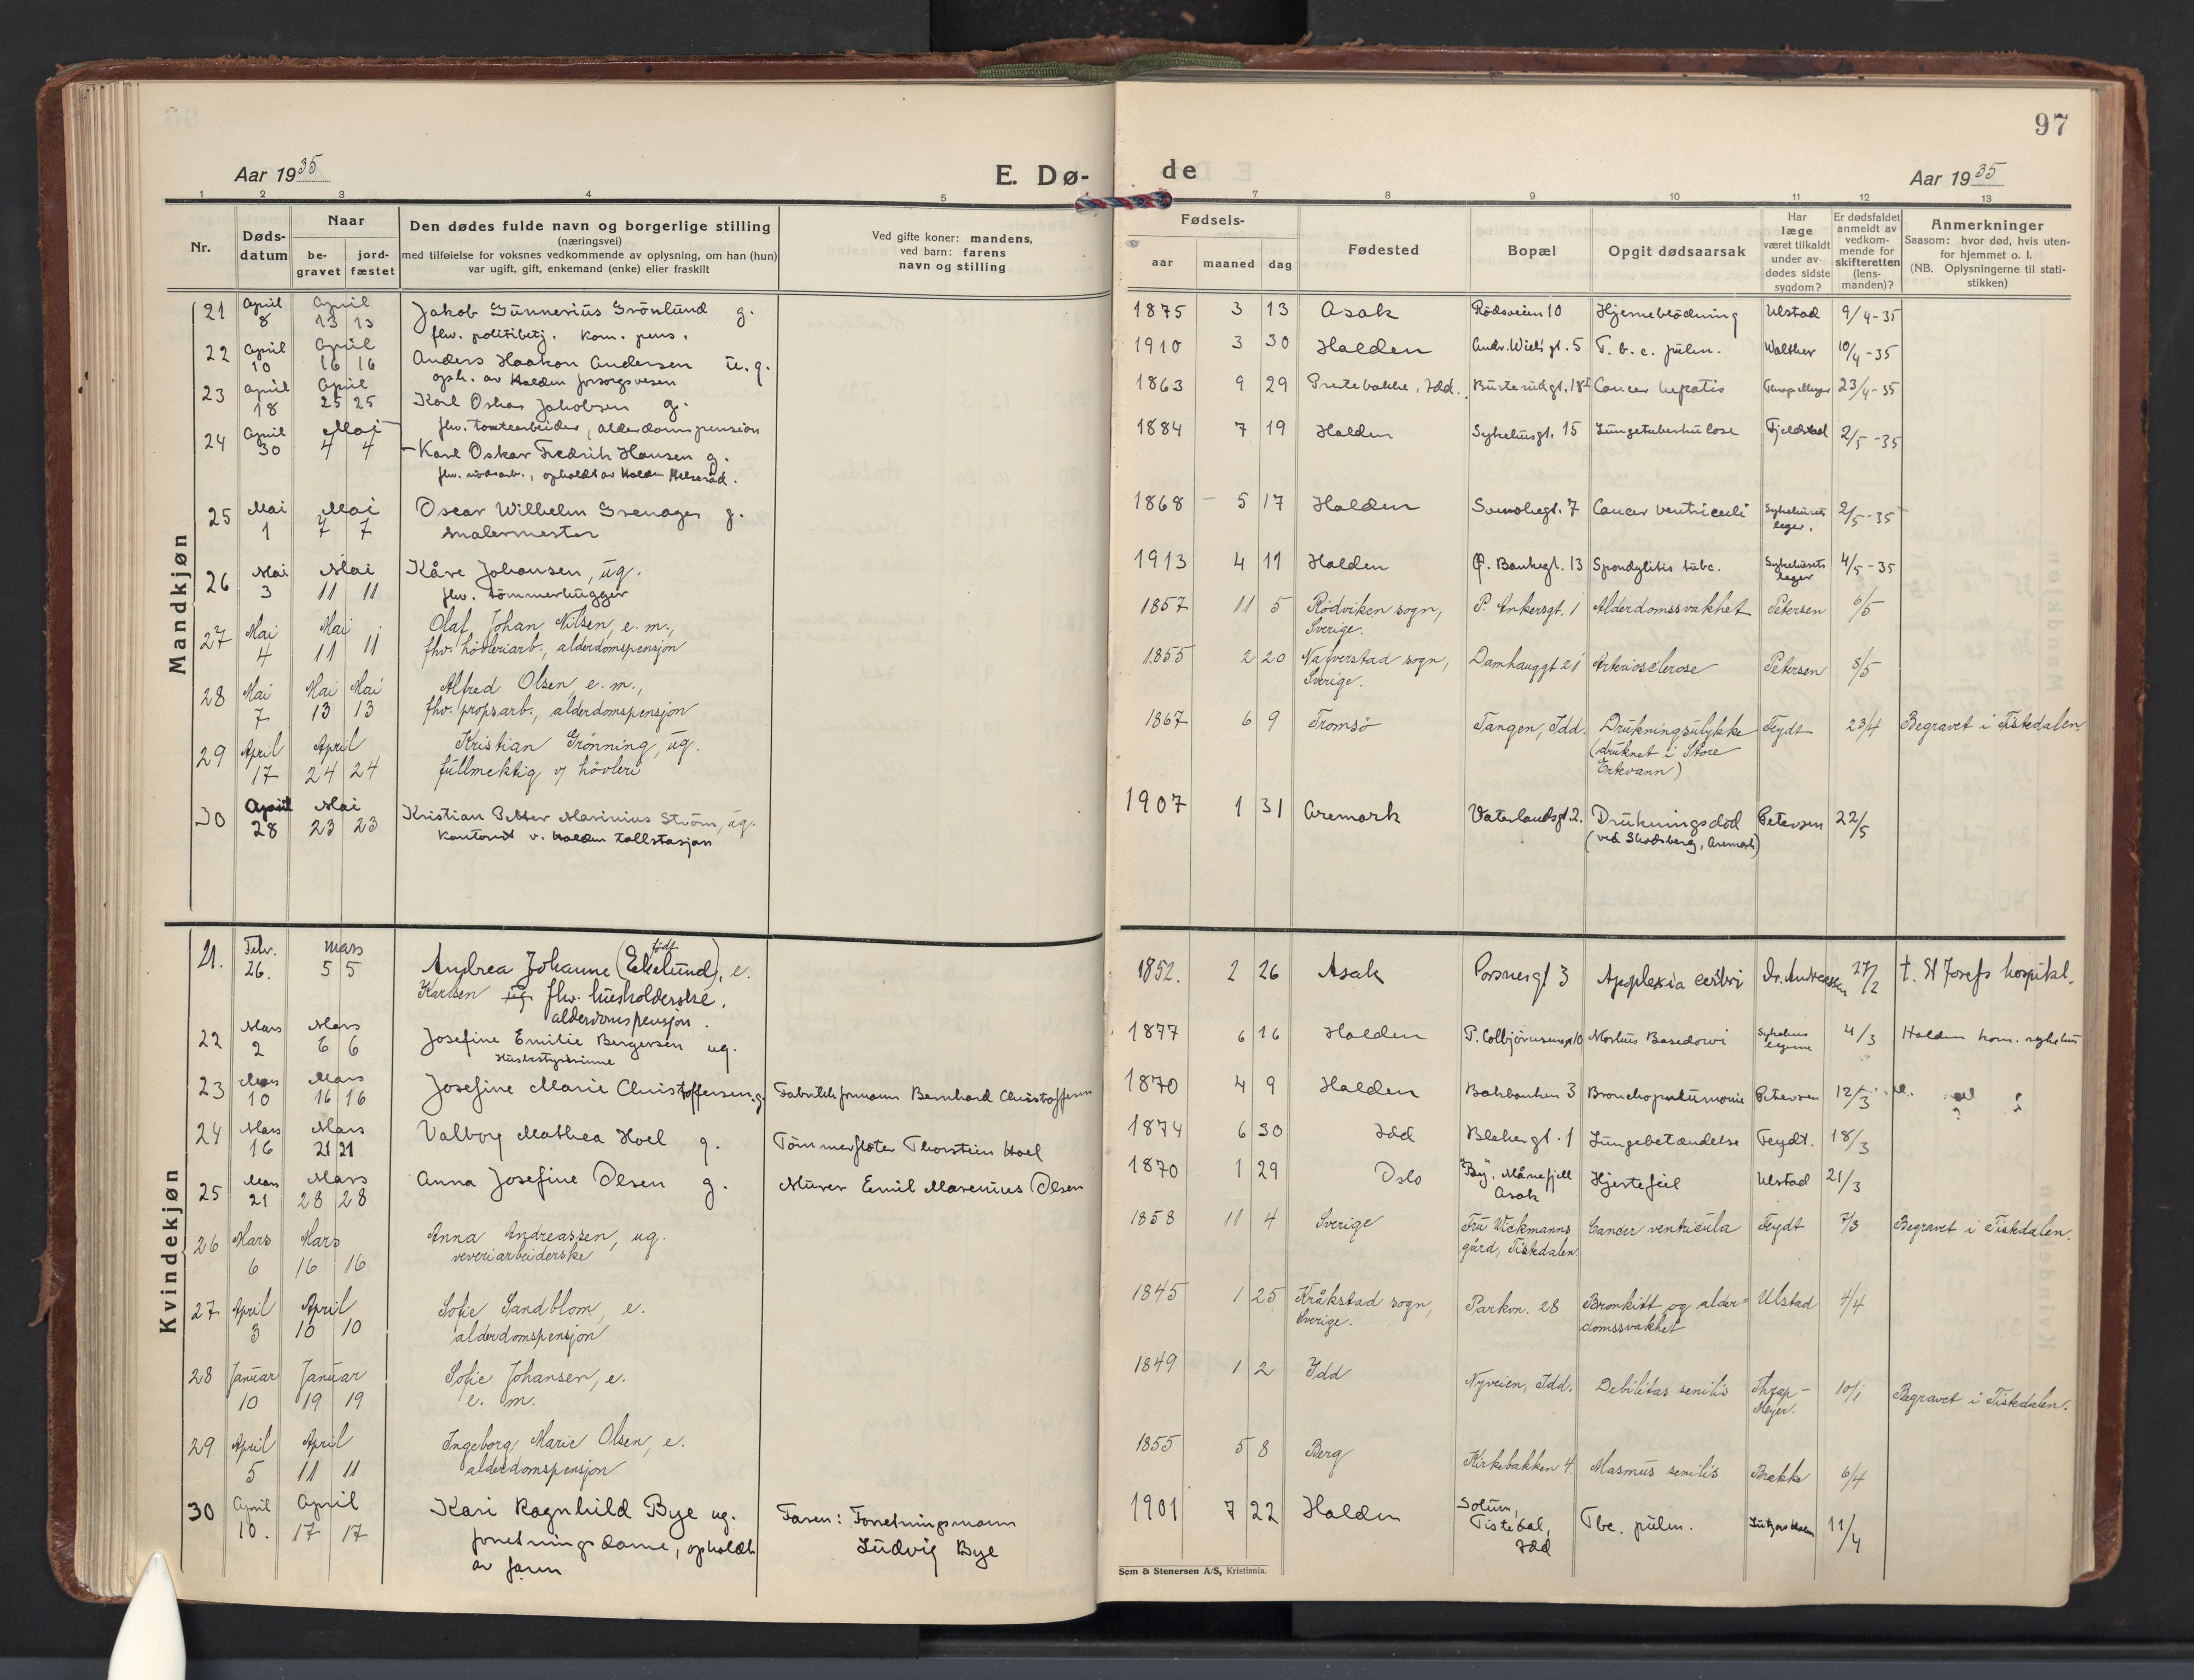 97
Aar 1935
E. Dø-
de
Aar 1935
1 2 3 4 5 7 8 9 10 11 12 13
Nr.
Døds-
datum
Naar
be-
gravet
jord-
fæstet
Den dødes fulde navn og borgerlige stilling
(næringsvei)
med tilføielse for voksnes vedkommende av oplysning, om han (hun)
var ugift, gift, enkemand (enke) eller fraskilt
Ved gifte koner: mandens,
ved barn: farens
navn og stilling
Fødsels-
aar maaned dag
Fødested
Bopæl
Opgit dødsaarsak
Har
læge
været tilkaldt
under av-
dødes sidste
sygdom?
Er dødsfaldet
anmeldt av
vedkom-
mende for
skifteretten
(lens-
manden)?
Anmerkninger
Saasom: hvor død, hvis uten-
for hjemmet o. l.
(NB. Oplysningerne til stati-
stikken)
Mandkjøn
21 April 8 April 13 13 Jakob Gunnerius Grönlund g. 1875 3 13 Asak Rödsveien 10 Hjerneblödning Ulstad 9/4-35
fhv. politibetj. kom. pens.
22 April 10 April 16 16 Anders Haakon Andersen u.g. 1910 3 30 Halden Andr. Wiels gt. 5 T.b.c. pulm. Walther 10/4-35
oph. av Halden forsorgsvesen
23 April 18 April 25 25 Karl Oskar Jakobsen g. 1863 9 29 Prestebakke, Idd. Busterudgt. 18 Cancer hepatis 23/4-35
fhv. tomtearbeider, alderdomspension
24 April 30 Mai 4 4 Karl Oskar Fredrik Hansen g. 1884 7 19 Halden Sykehusgt. 15 Lungetuberkulose Fjeldstad 2/5-35
opholdt av Halden Helseråd.
25 Mai 1 Mai 7 7 Oscar Wilhelm Grenager g. 1868 5 17 Halden 7 Cancer ventriculi Sykehusets leger. 2/5-35
malermester
26 Mai 3 Mai 11 11 Kåre Johansen, ug. 1913 4 11 Halden Ø. Bankegt. 13 Spondylitis tubc. Sykehusets leger 4/5-35
fhv. tömmerhugger
27 Mai 4 Mai 11 11 Olaf Johan Nilsen, e. m., 1857 11 5 Rödviken sogn, Sverige. P. Ankersgt. 1 Alderdomssvakhet Petersen 6/5
fhv. hövleriarb., alderdomspensjon
28 Mai 7 Mai 13 Mai 13 Alfred Olsen, e. m., 1855 2 20 Naverstad sogn, Sverige. Damhauggt 21 Arteriosclerose Petersen 8/5
fhv. propsarb., alderdomspensjon
29 April 17 April 24 24 Kristian Grönning, ug. 1867 6 9 Tromsö Tangen, Idd. Drukningsulykke Feydt 23/4 Begravet i Tistedalen.
fullmektig v/ hövleri (druknet i Store
Ertevann)
30 April 28 Mai 23 23 Kristian Petter Marinius Ström, ug. 1907 1 31 Aremark Vaterlandsgt. 2. Drukningsdöd Petersen 22/5
kontorist v. Halden tollstasjon (ved Skodsberg, Aremark)
Kvindekjøn
21. Febr. 26. Mars 5 5 Andrea Johanne (født Ekelund), e. 1852. 2 26 Asak 3 Apoplexia cerebri Dr. Andreassen 27/2 †. St Josefs hospital.
Karlsen ug fhv. husholderske,
alderdomspensjon.
22 Mars 2 Mars 6 6 Josefine Emilie Bergersen ug. 1877 6 16 Halden P. Colbjörnsensgt 10 Morbus Basedowi Sykehus legene 4/3 Halden kom. sykehus
Husbestyrerinne
23 Mars 10 Mars 16 16 Josefine Marie Christoffersen g. Fabrikkformann Bernhard Christoffersen 1870 4 9 Halden Bakbanken 3 Bronchopneumonie Petersen 12/3
24 Mars 16 Mars 21 21 Valborg Mathea Hoel g. Tömmerfløter Thorstein Hoel 1874 6 30 Idd Blekergt. 1 Lungebetændelse Feydt. 18/3
25 Mars 21 Mars 28 28 Anna Josefine Olsen g. Murer Emil Marenius Olsen 1870 1 29 Oslo "By", Månefjell Asak Hjertefeil Ulstad 21/3
26 Mars 6 Mars 16 16 Anna Andreassen, ug. 1858 11 4 Sverige Fru Wickmanns gård, Tistedalen. Cancer ventricula Feydt 7/3 Begravet i Tistedalen.
veveriarbeiderske
27 April 3 April 10 10 Sofie Sandblom, e. 1845 1 25 Kråkstad sogn, Sverige. Parkvn. 28 Bronkitt og alder= Ulstad 4/4
alderdomspensjon domssvakhet
28 Januar 10 Januar 19 19 Sofie Johansen, e. 1849 1 2 Idd Nyveien, Idd. Debilitas senilis Thrap-Meyer. 10/1 Begravet i Tistedalen.
e. m.
29 April 5 April 11 11 Ingeborg Marie Olsen, e. 1855 5 8 Berg Kirkebakken 4. Masmus senilis Brekke 6/4
alderdomspensjon
30 April 10. April 17 17 Kari Ragnhild Bye ug. Faren: Forretningsmann Ludvig Bye 1901 7 22 Halden Solum, Tistedal, Idd Tbc. pulm. 11/4
forretningsdame, opholdt
av faren
Sem & Stenersen A/S, Kristiania.